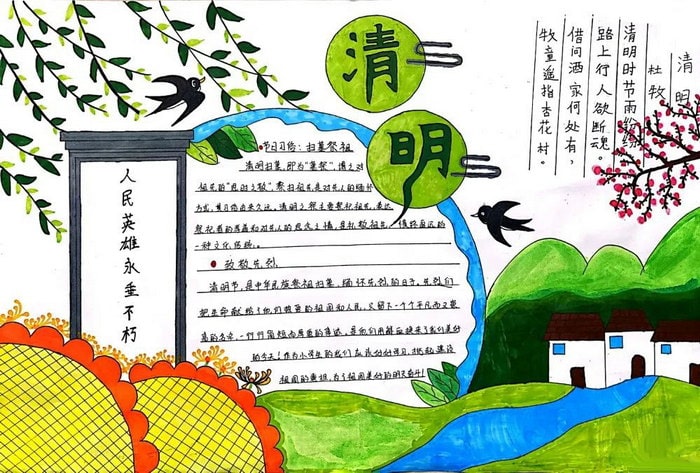 清明
清明
杜牧
清明时节雨纷纷
路上行人欲断魂。
借问酒家何处有,
牧童遥指杏花村。
人民英雄永垂不朽
节日习俗:扫墓祭祖
清明扫墓,即为"墓祭",谓之对
祖先的"思时之敬"祭扫祖先是对先人的缅怀
方式,其习俗由来久远。清明之祭主要祭祀祖先,表达
祭祀者的孝道和对先人的思念之情,是礼敬祖先、慎终追远的
一种文化传统。
致敬先烈
清明节,是中华民族祭祖扫墓、缅怀先烈的日子。先烈们
把生命献给了他们挚爱的祖国和人民,又留下一个个平凡而又
的名字,一行行简短而厚重的事迹,是他们用鲜血换来了我们美好
的今天!作为小学生的我们应该好好学习,担起建设
祖国的重担,为了祖国美好的明天奋斗!